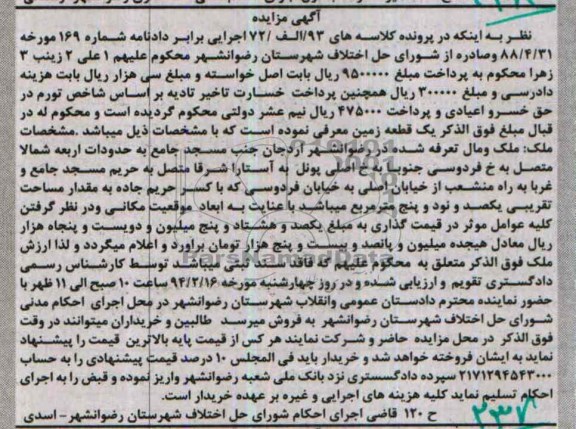 آگهی مزایده
نظر به اینکه در پرونده کلاسه های ۹۳/الف /۷۲ اجرایی برابر دادنامه شماره ۱۶۹ مورخه
۸۸/۴/۳۱ وصادره از شورای حل اختلاف شهرستان رضوانشهر محکوم علیهم ۱ علی ۲ زینب ۳
زهرا محکوم به پرداخت مبلغ ۹۵۰۰۰۰۰ ریال بابت اصل خواسته و مبلغ سی هزار ریال بابت هزینه
دادرسی و مبلغ ۳۰۰۰۰۰ ریال همچنین پرداخت خسارت تاخیر تادیه بر اساس شاخص تورم در
حق خسرو اعیادی و پرداخت ۴۷۵۰۰۰ ریال نیم عشر دولتی محکوم گردیده است و محکوم له در
قبال مبلغ فوق الذکر یک قطعه زمین معرفی نموده است که با مشخصات ذیل میباشد .مشخصات
ملک: ملک ومال تعرفه شده در رضوانشهر اردجان جنب مسجد جامع به حدودات اربعه شمالا
متصل به خ فردوسی جنوبا به خ اصلی پونل به آستارا شرقا متصل به حریم مسجد جامع و
غربا به راه منشعب از خیابان اصلی به خیابان فردوسی که با کسر حریم جاده به مقدار مساحت
تقریبی یکصد و نود و پنج مترمربع میباشد با عنایت به ابعاد موقعیت مکانی ودر نظر گرفتن
کلیه عوامل موثر در قیمت گذاری به مبلغ یکصد و هشتاد و پنج میلیون و دویست و پنجاه هزار
ریال معادل هیجده میلیون و پانصد و بیست و پنج هزار تومان براورد و اعلام میگردد و لذا ارزش
ملک فوق الذکر متعلق به محکوم علیهم که فاقد ثبتی میباشد توسط کارشناس رسمی
دادگستری تقویم و ارزیابی شده و در روز چهارشنبه مورخه ۹۴/۲/۱۶ ساعت ۱۰ صبح الی ۱۱ ظهر با
حضور نماینده محترم دادستان عمومی وانقلاب شهرستان رضوانشهر در محل اجرای احکام مدنی
شورای حل اختلاف شهرستان رضوانشهر به فروش میرسد طالبین و خریداران میتوانند در وقت
فوق الذکر در محل مزایده حاضر و شرکت نمایند هر کس از قیمت پایه بالاترین قیمت را پیشنهاد
نماید به ایشان فروخته خواهد شد و خریدار باید فی المجلس ۱۰ درصد قیمت پیشنهادی را به حساب
۲۱۷۱۲۹۴۵۴۳۰۰۰ سپرده دادگستری نزد بانک ملی شعبه رضوانشهر واریز نموده و قبض را به اجرای
احکام تسلیم نماید کلیه هزینه های اجرایی و غیره بر عهده خریدار است.
ح ۱۲۰ قاضی اجرای احکام شورای حل اختلاف شهرستان رضوانشهر- اسدی
۲۳۷
ParsNamadData